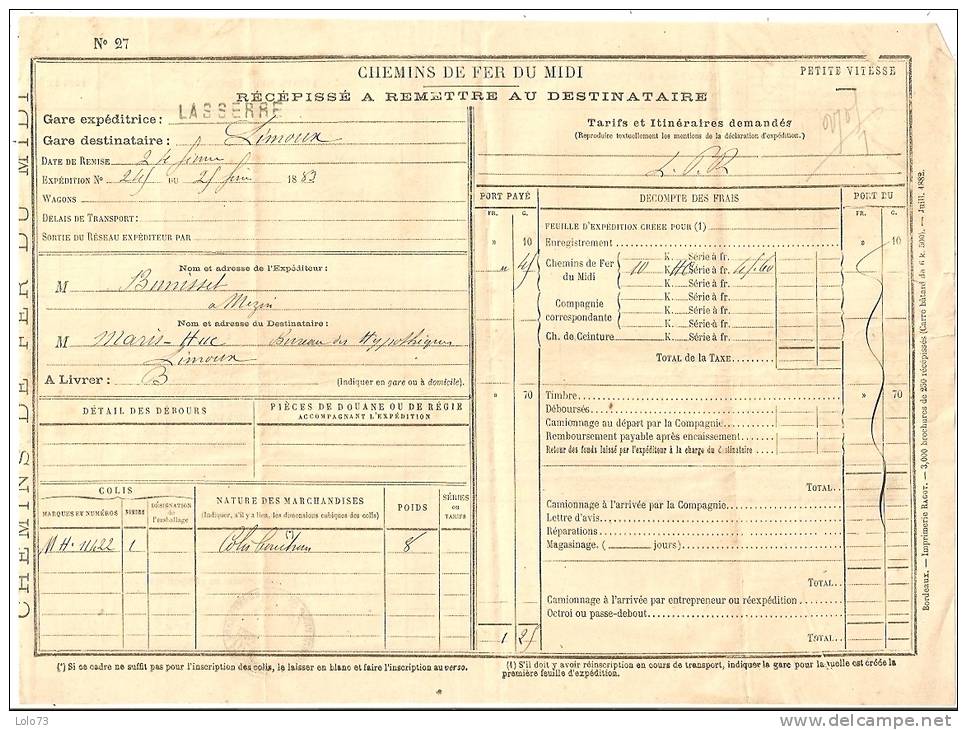 Nº 27
CHEMINS DE FER DU MIDI
PETITE VITESSE
RÉCÉPISSÉ A REMETTRE AU DESTINATAIRE
CHEMINS DE FER DU MIDI
Gare expéditrice : LASSERRE
Gare destinataire : Limoux
DATE DE REMISE
EXPÉDITION Nº 245 DU 25 1883
WAGONS
DÉLAIS DE TRANSPORT :
SORTIE DU RÉSEAU EXPÉDITEUR PAR
Nom et adresse de l'Expéditeur :
M
a Mezin
Nom et adresse du Destinataire :
M Maris-Huc Bureau des Hypothèques
Limoux
A LIVRER : B (Indiquer en gare ou à domicile).
Tarifs et Itinéraires demandés
(Reproduire textuellement les mentions de la déclaration d'expédition.)
PORT PAYÉ
DÉCOMPTE DES FRAIS
PORT DU
FR. C.
FR. C.
FEUILLE D'EXPÉDITION CRÉÉE POUR (1)
» 10 Enregistrement » 10
» 45 Chemins de Fer du Midi
K. Série à fr.
10 K. Série à fr. 45.60
K. Série à fr.
K. Série à fr.
Compagnie correspondante
K. Série à fr.
K. Série à fr.
Ch. de Ceinture K. Série à fr.
TOTAL DE LA TAXE
» 70 Timbre » 70
Déboursés
Camionnage au départ par la Compagnie
Remboursement payable après encaissement
Retour des fonds laissé par l'expéditeur à la charge du destinataire
TOTAL
Camionnage à l'arrivée par la Compagnie
Lettre d'avis
Réparations
Magasinage. ( jours)
TOTAL
Camionnage à l'arrivée par entrepreneur ou réexpédition
Octroi ou passe-debout
1 25 TOTAL
DÉTAIL DES DÉBOURS
PIÈCES DE DOUANE OU DE RÉGIE
ACCOMPAGNANT L'EXPÉDITION
COLIS
MARQUES ET NUMÉROS
NOMBRE
DÉSIGNATION de l'emballage
NATURE DES MARCHANDISES
(Indiquer, s'il y a lieu, les dimensions cubiques des colis)
(*)
POIDS
SÉRIES ou TARIFS
MH. 11422 1 8
(*) Si ce cadre ne suffit pas pour l'inscription des colis, le laisser en blanc et faire l'inscription au verso.
(1) S'il doit y avoir réinscription en cours de transport, indiquer la gare pour laquelle est créée la
première feuille d'expédition.
Bordeaux. — Imprimerie RAGOT. — 3,000 brochures de 250 récépissés (Carré bâtard de 6 k. 500). — Juill. 1882.
Lolo73
www.delcampe.net